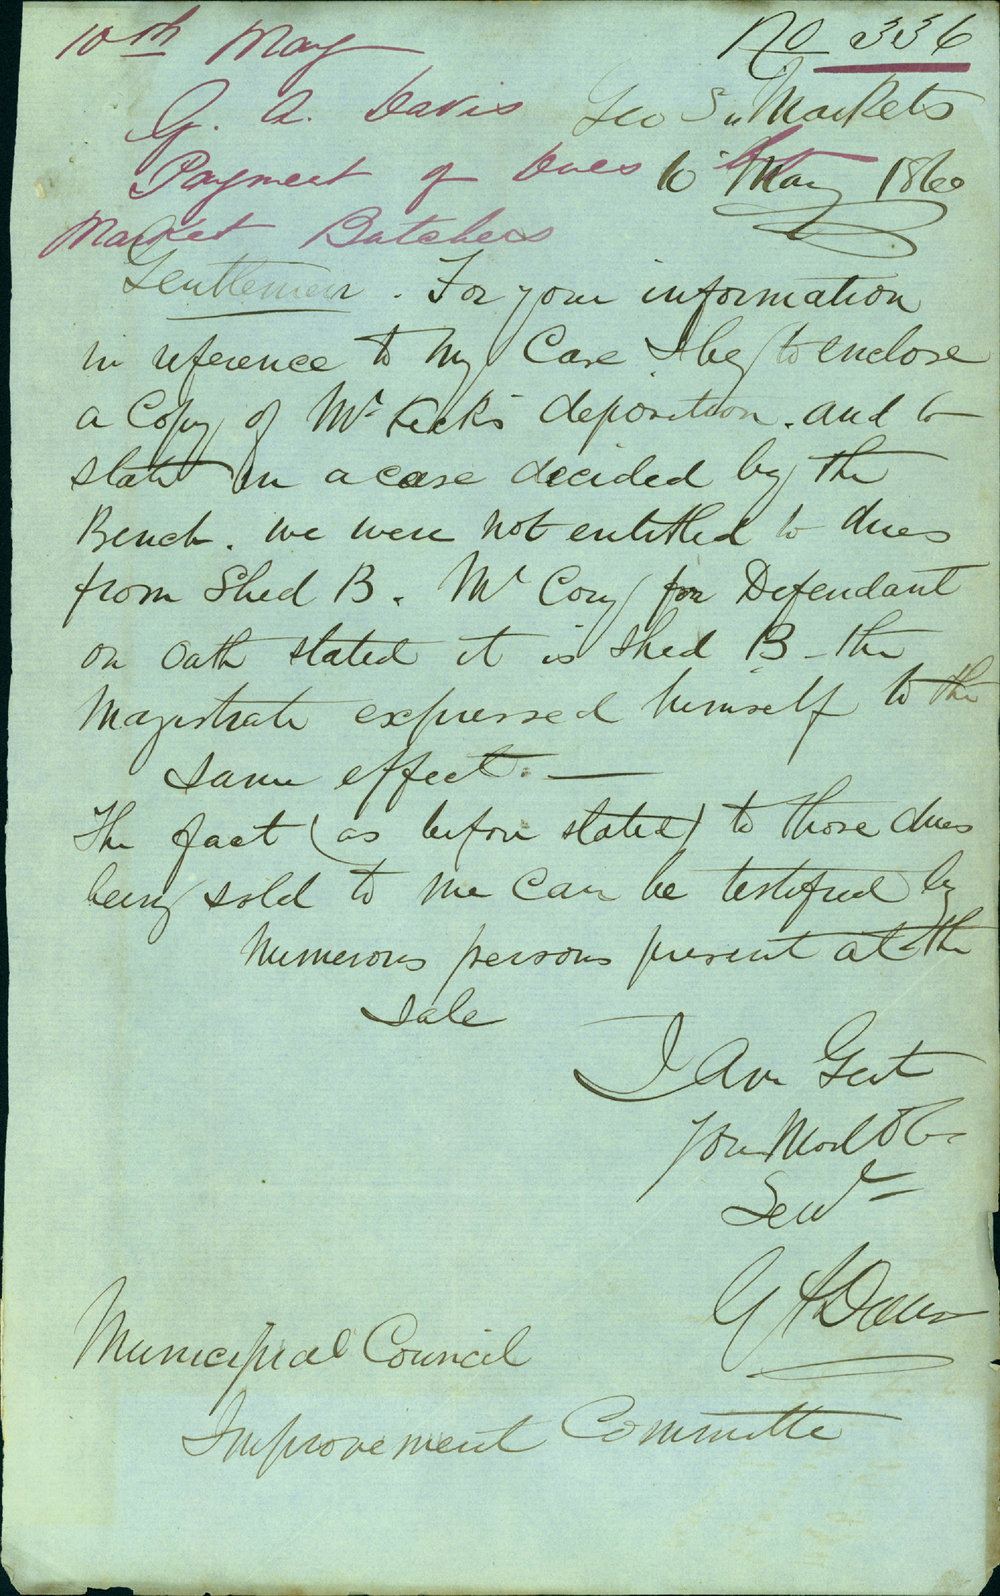 10th May
No 336
G. A. Davis
Geo St Markets
Payment of Dues by
10 May 1860
Market Butchers
Gentlemen. For your information
in reference to my Case I beg to enclose
a Copy of Mr deposition. and to
state in a case decided by the
Bench. we were not entitled to dues
from Shed B. Mr Cory for Defendant
on oath stated it is Shed B - the
Magistrate expressed himself to the
same effect. —
The fact (as before stated) to those dues
being sold to me can be testified by
numerous persons present at the
sale
I Am Gent
Your Most Ob
Servt
G A Davis
Municipal Council
Improvement Committee